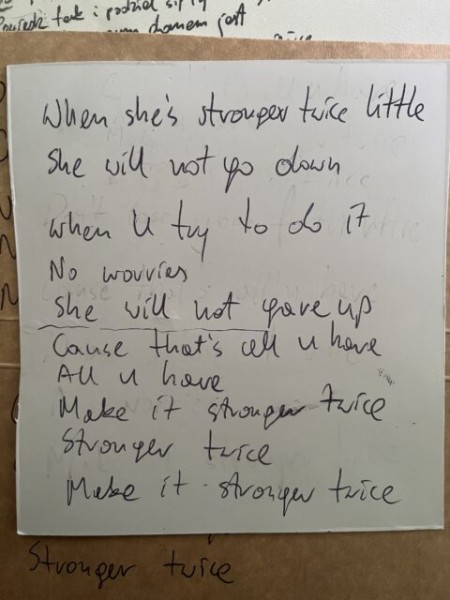 Powiedz tak i podziel się
domem jest
When she's stronger twice little
She will not go down
when U try to do it
No worries
She will not gave up
Cause that's all u have
All u have
Make it stronger twice
Stronger twice
Make it stronger twice
Stronger twice